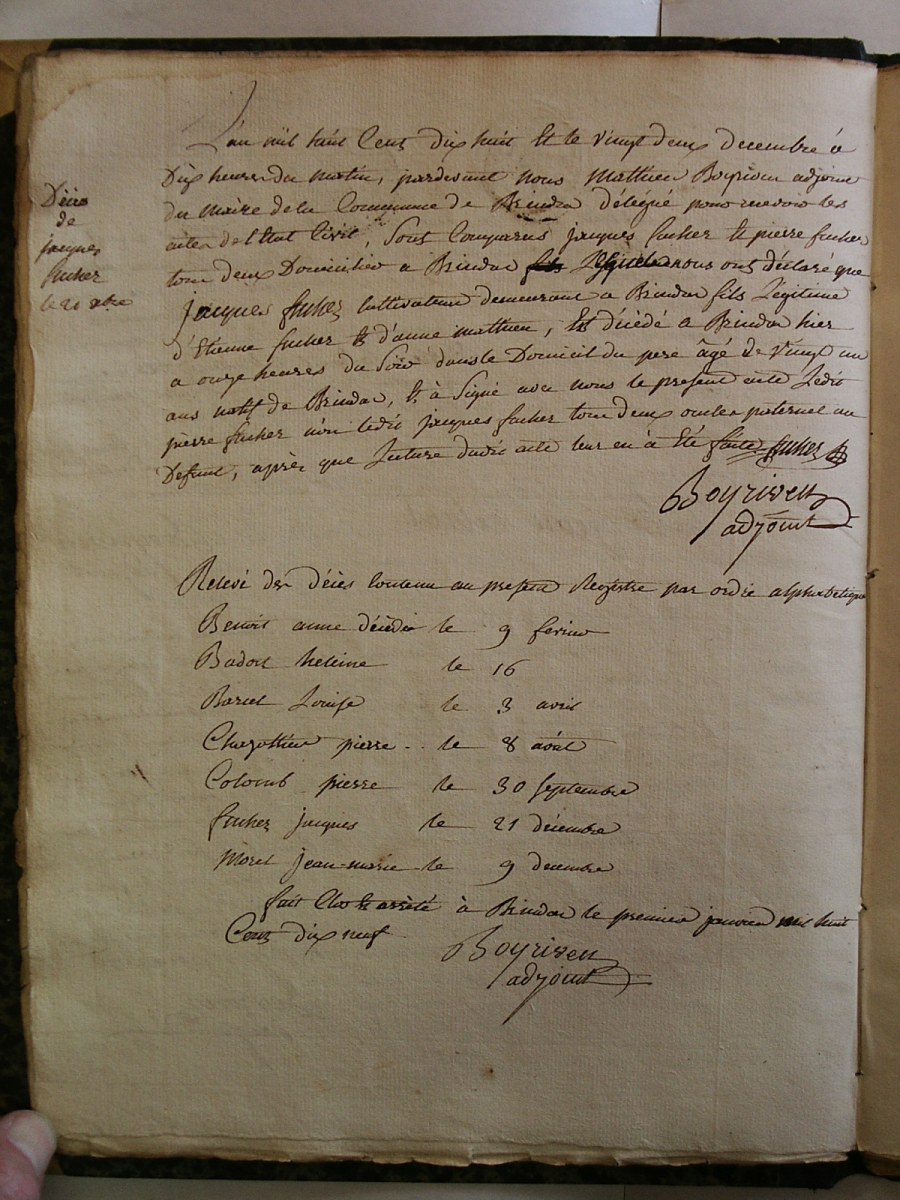 L'an mil huit Cent dix huit Et le vingt deux decembre à
Dix heures du matin, pardevant nous Mathieu Boyriven adjoint
Décés
de
jacques
fucher
le 21 xbre
du maire de la Commune de Brindas délégué pour recevoir les
actes de l'Etat Civil, Sont Comparus jacques fucher Et pierre fucher
tous deux Domiciliés a Brindas Lesquels nous ont déclaré que
jacques fucher Cultivateur demeurant a Brindas fils Legitime
d'Etienne fucher Et d'anne mathieu, Est décédé a Brindas hier
a onze heures du Soir dans le Domicil du pere âgé de vingt un
ans natif de Brindas, Et à Signé avec nous le present acte Ledit
pierre fucher non ledit jacques fucher tous deux oncles paternel au
Defunt, après que Lecture dudit acte leur en à Eté faite fucher
Boyriven
adjoint
Relevé des décés Contenu au present Registre par ordre alphabetique
Benoit anne décédée le 9 fevrier
Badoil heleine le 16
Barcel Louise le 3 avril
Chazottier pierre .. le 8 aôut
Colomb pierre le 30 Septembre
fucher jacques le 21 décembre
Morel jean-marie le 9 decembre
fait Clos Et arrêté à Brindas le premier janvier mil huit
Cent dix neuf
Boyriven
adjoint